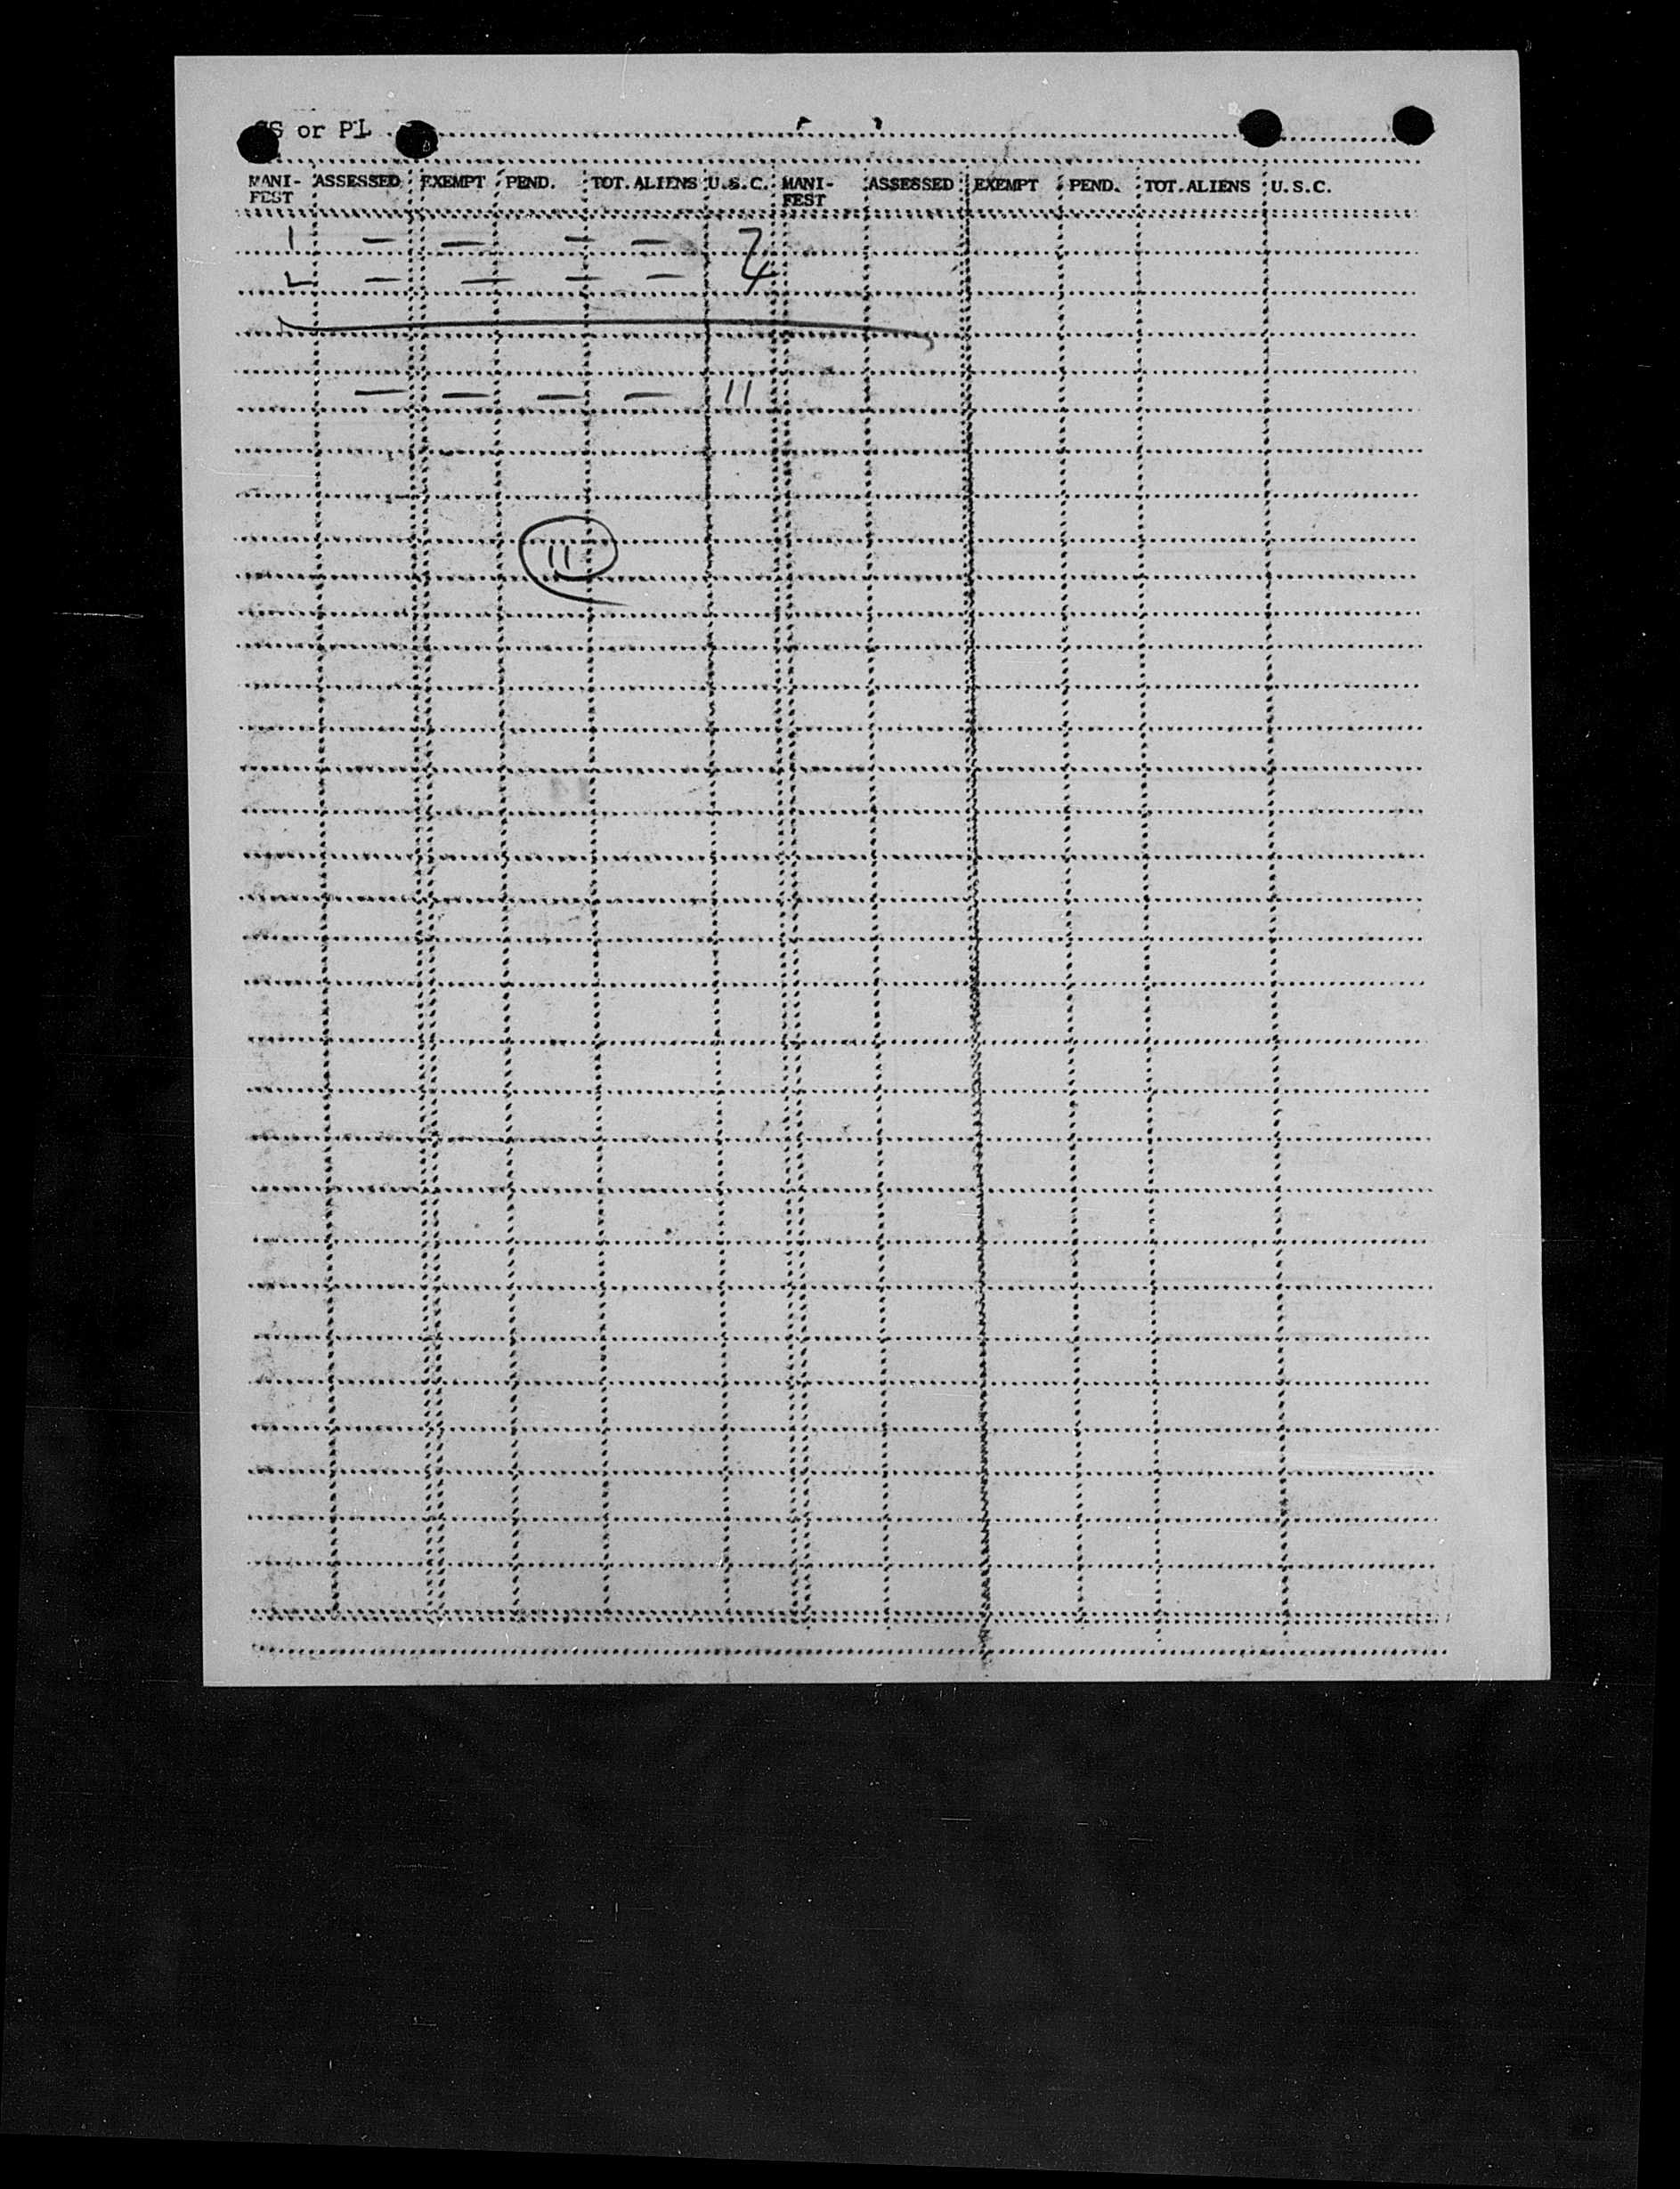 SS or PL
MANI-FEST ASSESSED EXEMPT PEND. TOT. ALIENS U.S.C. MANI-FEST ASSESSED EXEMPT PEND. TOT. ALIENS U.S.C.
1 — — — — 7
2 — — — — 4
— — — — 11
11